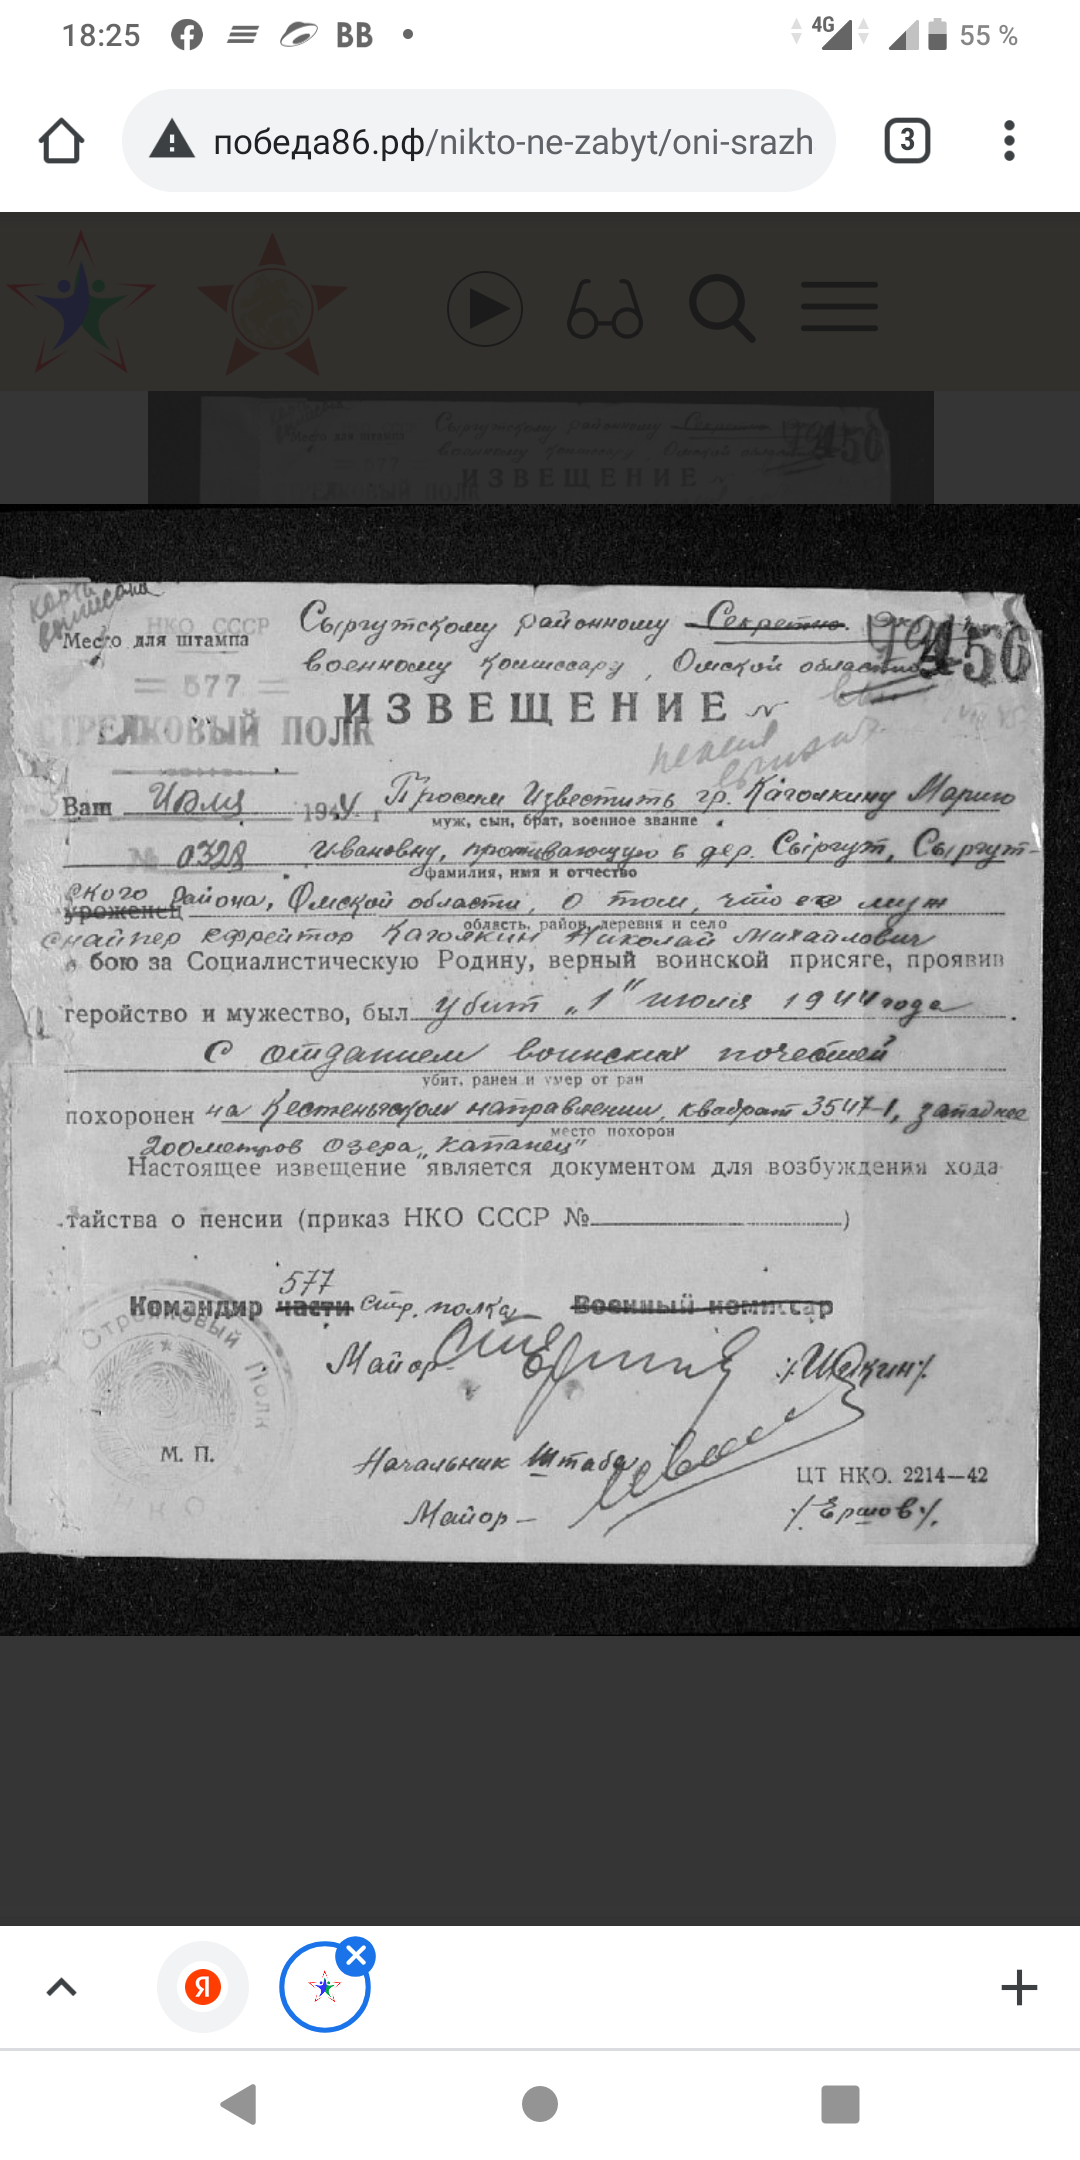 18:25 BB 4G 55 %
победа86.рф/nikto-ne-zabyt/oni-srazh 3
НКО СССР
Место для штампа
= 577 =
СТРЕЛКОВЫЙ ПОЛК
Сыргутскому районному Секретно.
военному комиссару, Омской области
450
ИЗВЕЩЕНИЕ
пенсия
Ваш Июля 1944 г Просим Известить гр. Кагоякину Марию
муж, сын, брат, военное звание
№ 0328 Ивановну, проживающую в дер. Сыргут, Сыргут-
фамилия, имя и отчество
ского района, Омской области, о том, что ее муж
уроженец
область, район, деревня и село
снайпер ефрейтор Кагоякин Николай Михайлович
в бою за Социалистическую Родину, верный воинской присяге, проявив
геройство и мужество, был убит „1" июля 1944 года
с отданием воинских почестей
убит, ранен и умер от ран
похоронен на Кестеньгском направлении, квадрат 3547-1, западнее
место похорон
200 метров Озера „Капанец"
Настоящее извещение является документом для возбуждения хода-
тайства о пенсии (приказ НКО СССР № )
577
Командир части стр. полка Военный комиссар
Майор- /Шевкгин/
Стрелковый Полк
НКО
М. П.
Начальник Штаба
ЦТ НКО. 2214—42
Майор — /Ершов/.
Я